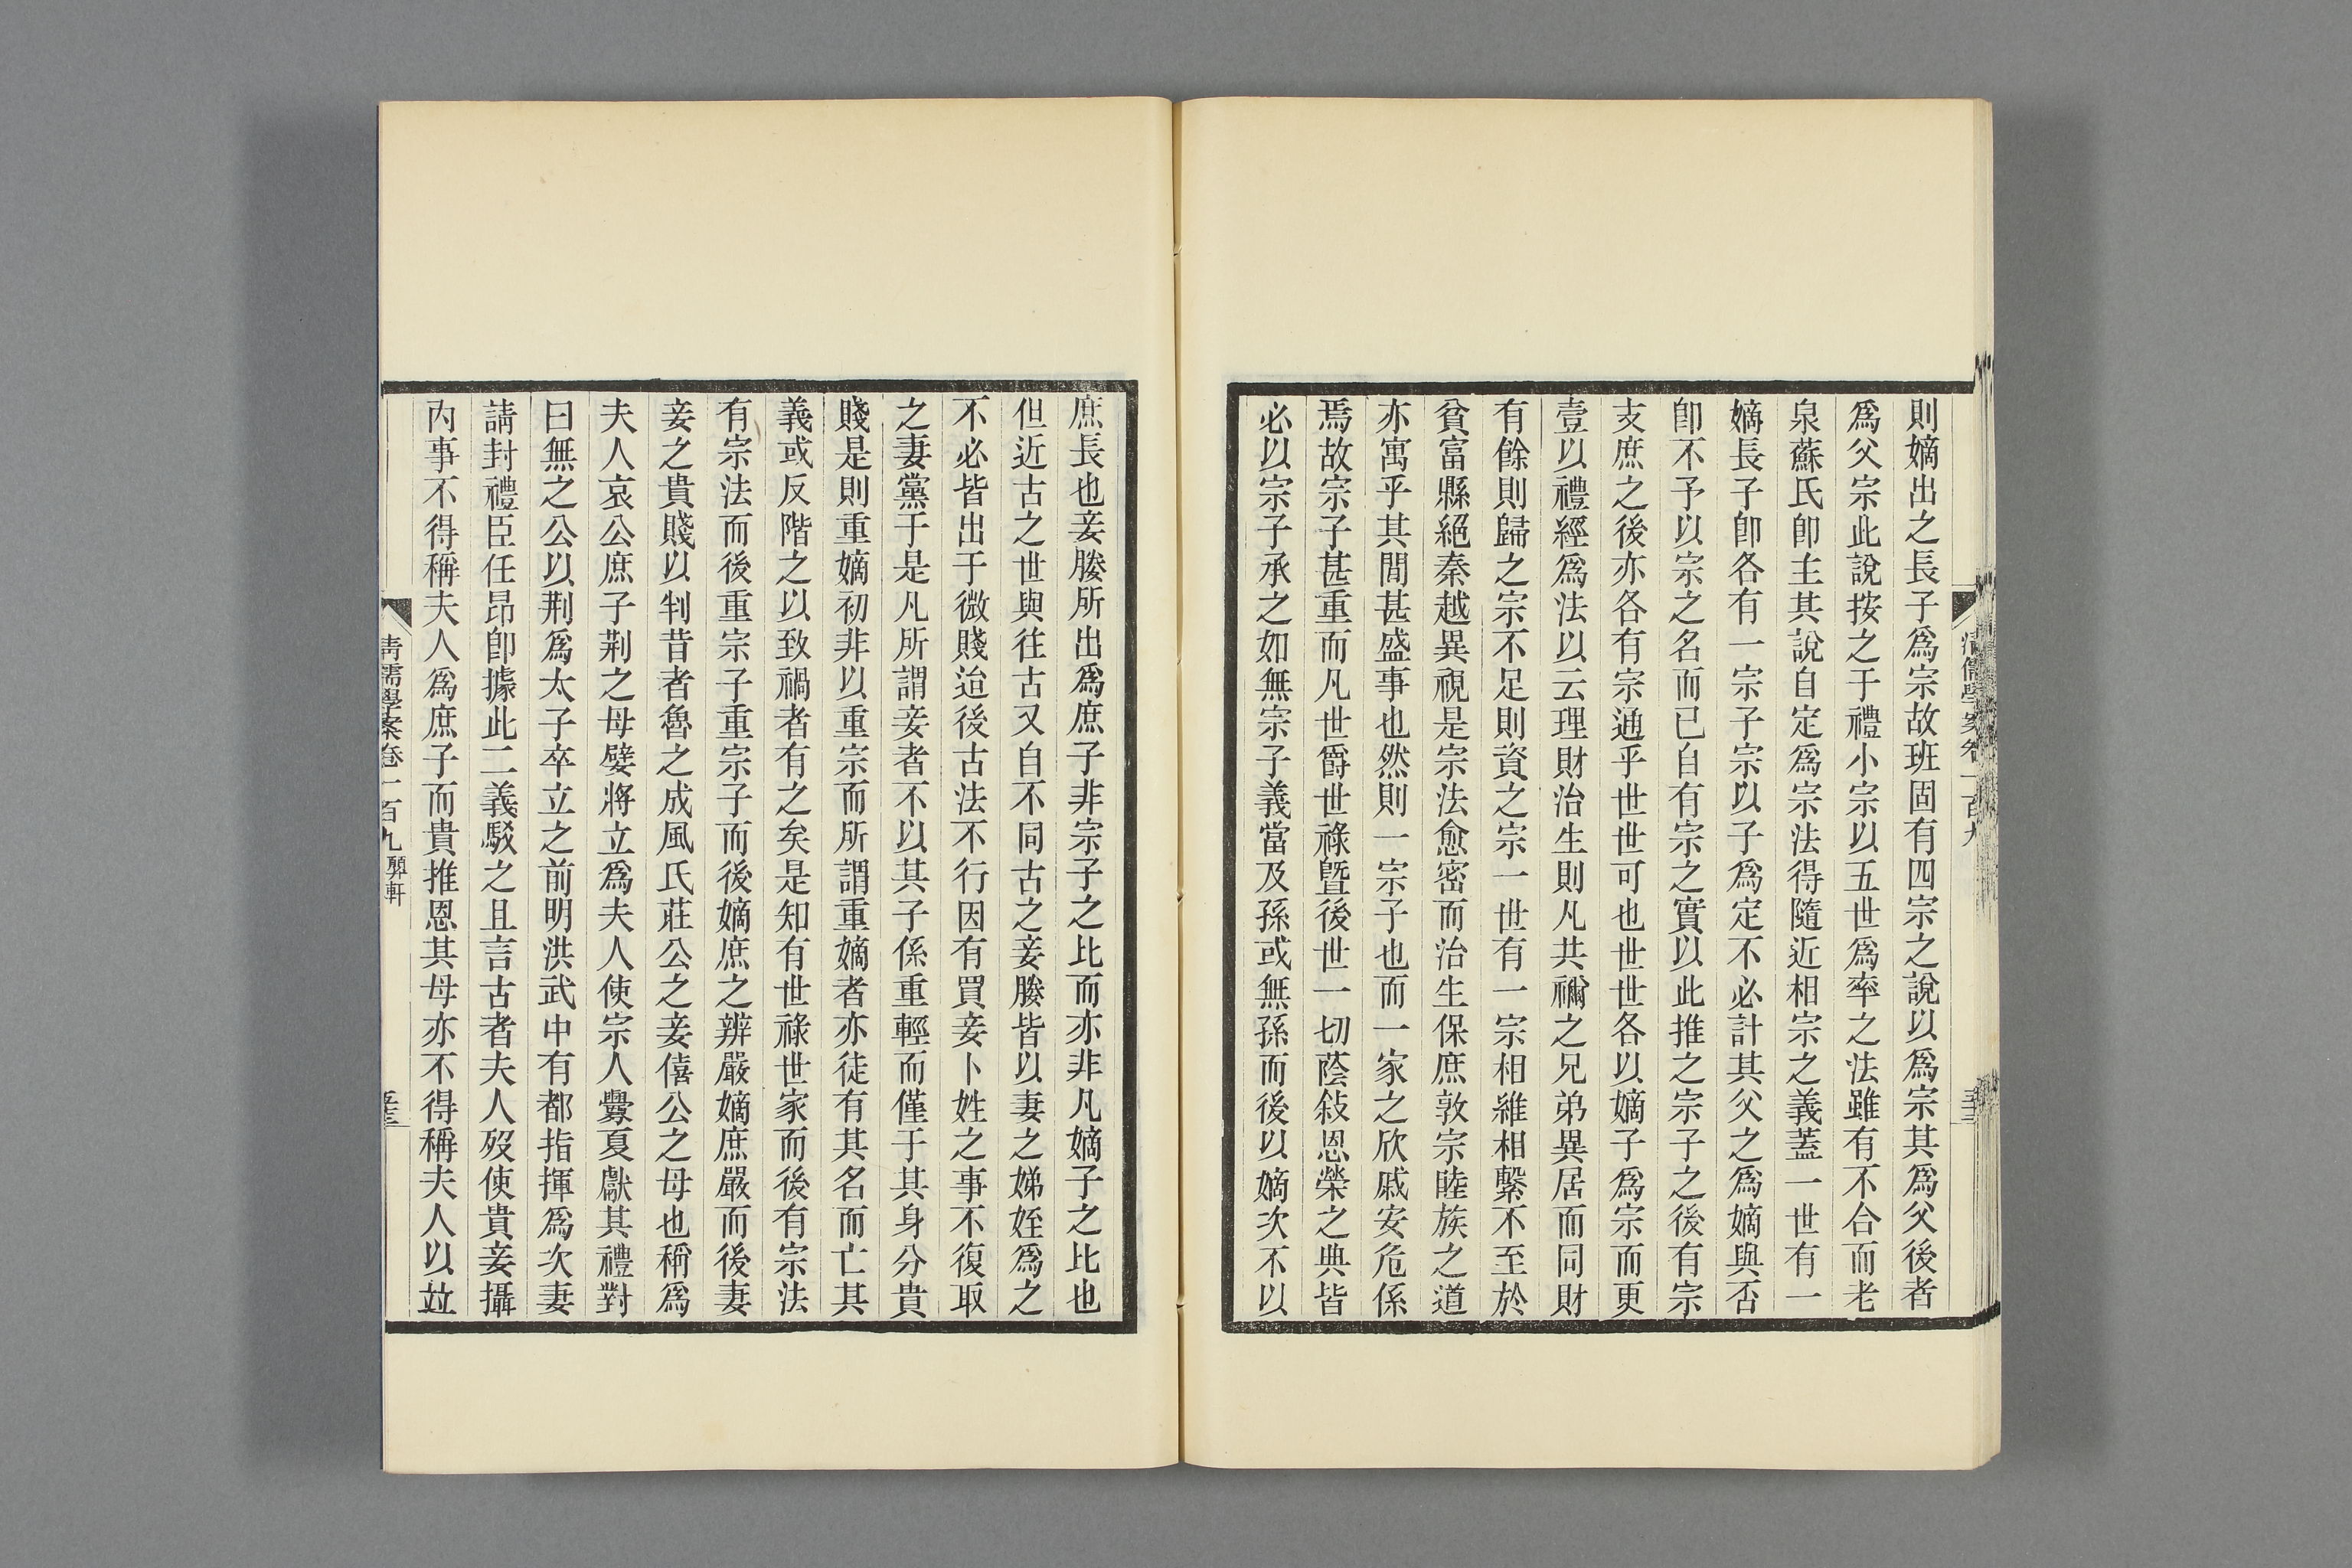 則嫡出之長子爲宗故班固有四宗之說以爲宗其爲父後者
爲父宗此說按之于禮小宗以五世爲率之法雖有不合而老
泉蘇氏卽主其說自定爲宗法得隨近相宗之義蓋一世有一
嫡長子卽各有一宗子宗以子爲定不必計其父之爲嫡與否
卽不予以宗之名而已自有宗之實以此推之宗子之後有宗
支庶之後亦各有宗通乎世世可也世世各以嫡子爲宗而更
壹以禮經爲法以云理財治生則凡共禰之兄弟異居而同財
有餘則歸之宗不足則資之宗一世有一宗相維相繫不至於
貧富縣絕秦越異視是宗法愈密而治生保庶敦宗睦族之道
亦寓乎其閒甚盛事也然則一宗子也而一家之欣戚安危係
焉故宗子甚重而凡世爵世祿曁後世一切蔭敍恩榮之典皆
必以宗子承之如無宗子義當及孫或無孫而後以嫡次不以
庶長也妾媵所出爲庶子非宗子之比而亦非凡嫡子之比也
但近古之世與往古又自不同古之妾媵皆以妻之娣姪爲之
不必皆出于微賤迨後古法不行因有買妾卜姓之事不復取
之妻黨于是凡所謂妾者不以其子係重輕而僅于其身分貴
賤是則重嫡初非以重宗而所謂重嫡者亦徒有其名而亡其
義或反階之以致禍者有之矣是知有世祿世家而後有宗法
有宗法而後重宗子重宗子而後嫡庶之辨嚴嫡庶嚴而後妻
妾之貴賤以判昔者魯之成風氏莊公之妾僖公之母也稱爲
夫人哀公庶子荆之母嬖將立爲夫人使宗人釁夏獻其禮對
曰無之公以荆爲太子卒立之前明洪武中有都指揮爲次妻
請封禮臣任昂卽據此二義駁之且言古者夫人歿使貴妾攝
內事不得稱夫人爲庶子而貴推恩其母亦不得稱夫人以竝
清儒學案卷一百九 顨軒